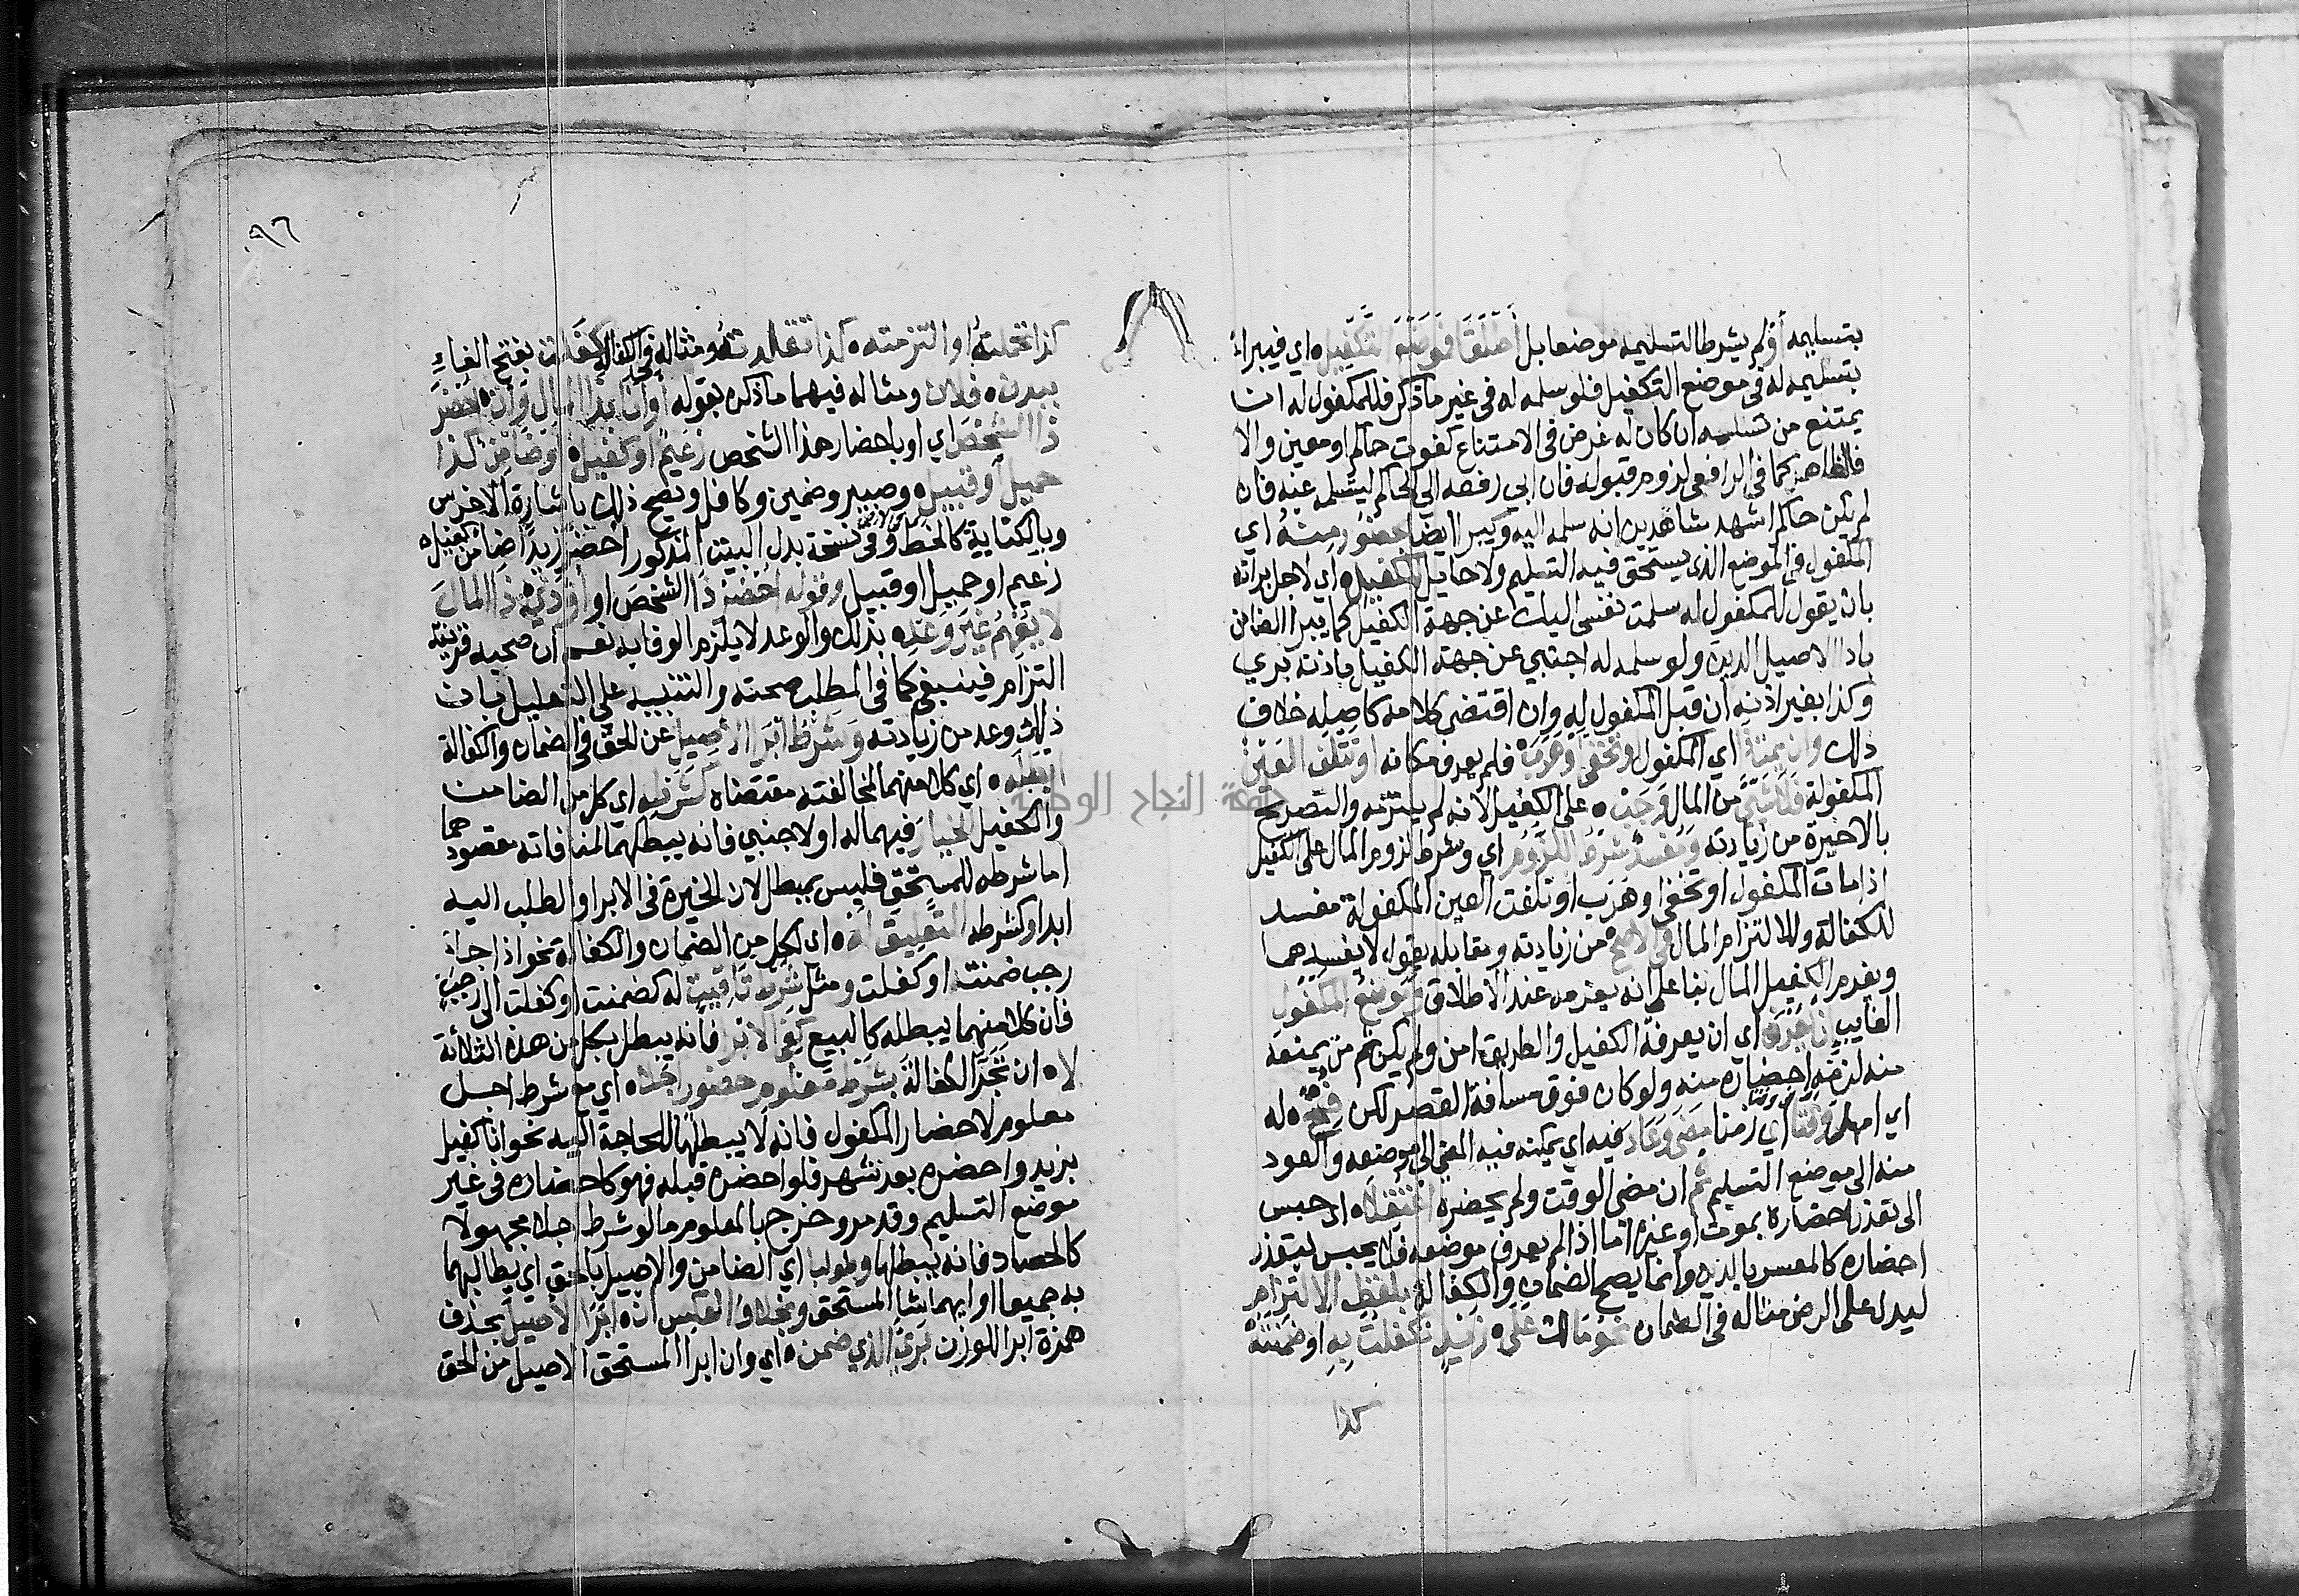 بتسليمه أو لم يشرط التسليمه موضعا بل أطلقا فموضع التكفيل ه اي فيبرا
بتسليمه له في موضع التكفيل فلو سلمه له في غير ما ذكر فللمكفول له ان
يمتنع من تسلمه ان كان له غرض في الامتناع كفوت حاكم او معين والا
فالظاهر كما في الرافعي لزوم قبوله فان ابي رفعه الي الحاكم ليتسلمه عنه فان
لم يكن حاكم اشهد شاهدين انه سلمه اليه ويبرا ايضا بحضور منه اي
المكفول في الموضع الذي يستحق فيه التسليم ولا حايل للكفيل ه اي لاجل براته
بان يقول للمكفول له سلمت نفسي اليك عن جهة الكفيل كما يبرا الضامن
بادا الاصيل الدين ولو سلمه له اجنبي عن جهة الكفيل باذنه بري
وكذا بغير اذنه ان قبل المكفول له وان اقتضي كلامه كاصله خلاف
ذلك وان يمت ه اي المكفول وتخفي او هرب ه فلم يعرف مكانه او تتلف العين
المكفولة فلا شي من المال وجب ه علي الكفيل لانه لم يلتزمه والتصريح
بالاخيرة من زيادته ويفسد شرط اللزوم اي وشرط لزوم المال علي الكفيل
اذا مات المكفول او تخفي او هرب او تلفت العين المكفولة مفسد
للكفالة وللالتزام المال في الاصح ه من زيادته ومقابله يقول لا يفسدهما
ويغرم الكفيل المال بنا علي انه يغرمه عند الاطلاق وموضع المكفول
الغايب ان عرف اي ان يعرفه الكفيل والطريق امن ولم يكن ثم من يمنعه
منه لزمه احضاره منه ولو كان فوق مسافة القصر لكن فسح ه له
اي امهل وقتا اي زمنا مضي وعاد فيه اي يمكنه فيه المضي الي موضعه والعود
منه الي موضع التسليم ثم ان مضي الوقت ولم يحضره اعتقلا ه اي حبس
الي تعذر احضاره بموت او غيره اما اذا لم يعرف موضعه فلا يحبس لتعذر
احضاره كالمعسر بالدين وانما يصح الضمان والكفالة بلفظ الالتزام
ليدل علي الرضي مثاله في الضمان نحو مالك علي ه زيد تكفلت به او ضمنته
كذا
٩٦
كذا تحملته او التزمته ه كذا تقلدته ومثاله في الكفالة كفلت بفتح الفاء
ببدن ه فلان ومثاله فيهما ما ذكره بقوله او انا بذا المال وان احضر
ذا الشخص اي او باحضار هذا الشخص زعيم او كفيل ه او ضامن كذا
حميل او قبيل ه وصبير وضمين وكافل ويصح ذلك باشارة الاخرس
وبالكتابة كالخط وفي نسخة بدل البيت المذكور احضر زيدا ضامن كفيل ه
زعيم او حميل او قبيل وقوله احضر ذا الشخص او اؤدي ه ذا المال
لا يفهم غير وعد ه بذلك والوعد لا يلزم الوفا به نعم ان صحبه قرينة
التزام فينبغي كما في المطلب صحته والتنبيه علي التعليل بان
ذلك وعد من زيادته وشرط ابرا الاصيل عن الحق في الضمان والكفالة
ابطله ه اي كلا منهما لمخالفته مقتضاه كشرطه اي كل من الضامن
والكفيل الخيار فيهما له او لاجنبي فانه يبطلهما لمنافاته مقصودهما
اما شرطه للمستحق فليس بمبطل لان الخيرة في الابرا والطلب اليه
ابدا وكشرطه التعليق له ه اي لكل من الضمان والكفالة نحو اذا جا
رجب ضمنت او كفلت ومثل شرط تاقيت له كضمنت او كفلت الي رجب
فان كلا منهما يبطله كالبيع كفي الابرا فانه يبطل بكل من هذه الثلاثة
لا ه ان نجز الكفالة بشرط معلوم حضور اجلا ه اي مع شرط اجل
معلوم لاحضار المكفول فانه لا يبطلها للحاجة اليه نحو انا كفيل
بزيد واحضره بعد شهر فلو احضره قبله فهو كاحضاره في غير
موضع التسليم وقد مر وخرج بالمعلوم ما لو شرط اجلا مجهولا
كالحصاد فانه يبطلها وطولبا اي الضامن والاصيل بالحق اي يطالبهما
به جميعا او ايهما شا المستحق وبخلاف العكس ان ه ابرا الاصيل بحذف
همزة ابرا للوزن بري الذي ضمن ه اي وان ابرا المستحق الاصيل من الحق
جامعة النجاح الوطنية